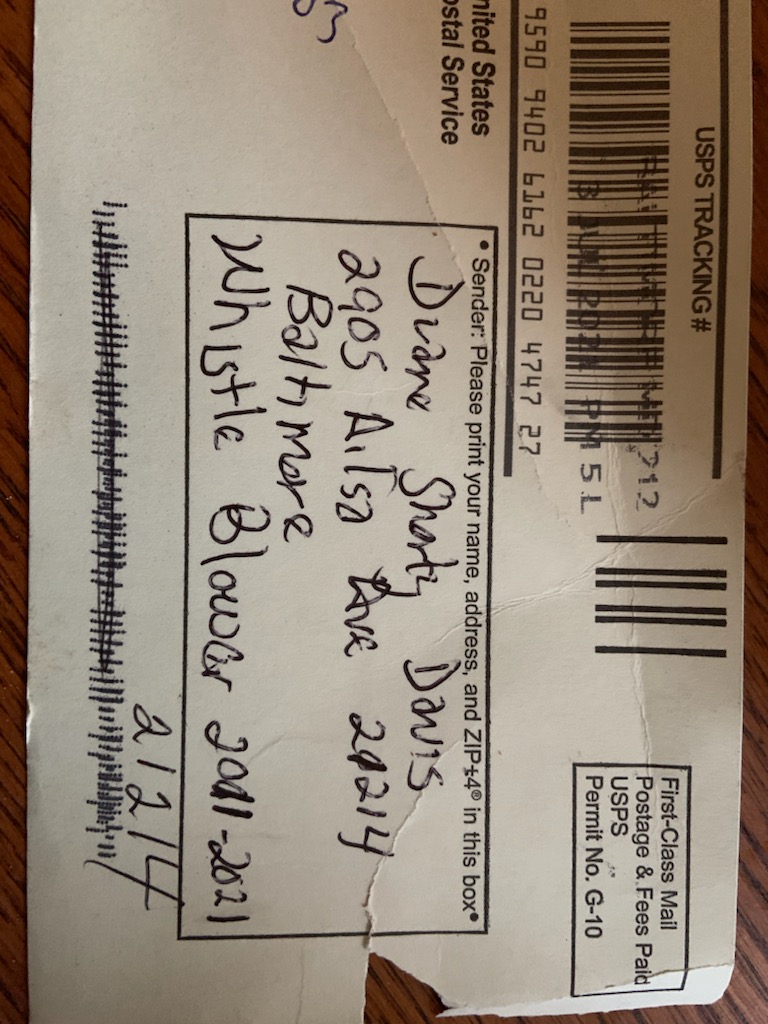 USPS TRACKING#
MD 212
PM 5 L
First-Class Mail
Postage & Fees Paid
USPS
Permit No. G-10
9590 9402 6162 0220 4747 27
nited States
ostal Service
• Sender: Please print your name, address, and ZIP+4® in this box•
Duane Shorty Davis
2905 Ailsa Ave 21214
Baltimore
Whistle Blower 2011-2021
21214